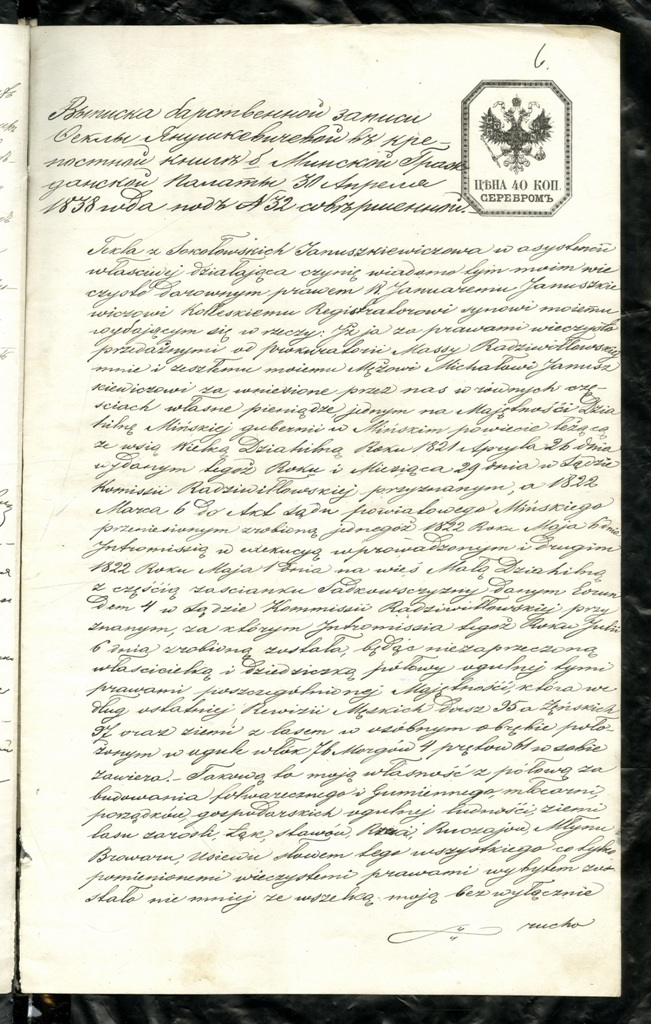 6.
ЦѢНА 40 КОП.
СЕРЕБРОМЪ
Выписка дарственной записи
Феклы Янушкевичевой въ кре
постной книгѣ Минской Граж
данской Палаты 30 Апреля
1838 года подъ N 32 совѣршенной.
Tekla z Sokołowskich Januszkiewiczowa w asystencii
właściwej działająca czynię wiadomo tym moim wie
czysto darownym prawem K Januaremu Januszkie
wiczowi Kolleskiemu Registratorowi synowi mojemu
wydającym się w rzeczy. Iż ja za prawami wieczysto
przedażnymi od prokuratorii Massy Radziwiłłowskiej
mnie i zeszłemu mojemu Mężowi Michałowi Janusz
kiewiczowi za wniesione przez nas w równych czę-
ściach własne pieniądze, jednym na Majętność Dzia
hilnę Mińskiej gubernii w Mińskim powiecie leżącą
ze wsią Wielką Dziahilną Roku 1821 Apryla 26 dnia
wydanym tegoż Roku i Miesiąca 29 dnia w Sądzie
Komissii Radziwiłłowskiej przyznanym, a 1822
Marca 6 do Akt Sądu powiatowego Mińskiego
przeniesionym zrobioną jednegoż 1822 Roku Maja 6 dnia
Intromissią w exekucyą wprowadzonym i drugim
1822 Roku Maja 1 dnia na wieś Małą Dziahilną
z częścią zaścianku Sadkowszczyzny danym Eorun
dem 4 w Sądzie Kommissii Radziwiłłowskiej przy
znanym, za którym Intromissia tegoż Roku Julii
6 dnia zrobioną została, będąc niezaprzeczoną
właścicielką i dziedziczką połowy ogulnej tymi
prawami poszczegulnionej Majętności, która we
dług ostatniej Rewizii Męzkich dusz 95 a Żeńskich
97 oraz ziemi z lasem w osóbnym obrębie poło
żonym w ogule włok 76 Morgów 4 prętów 61 w sobie
zawiera. Takową to moją własność z połową za
budowania folwarecznego i Gumiennego młocarni,
porządków gospodarskich ogulnej ludności, ziemi
lasu zarośli, Łąk, stawów, Rzeki, Ruczajów, Młynu
Browaru, Usiewu słowem tego wszystkiego co tylko
pomienionemi wieczystemi prawami wybytem zo
stało nie mniej ze wszelką moją bez wyłącznie
rucho